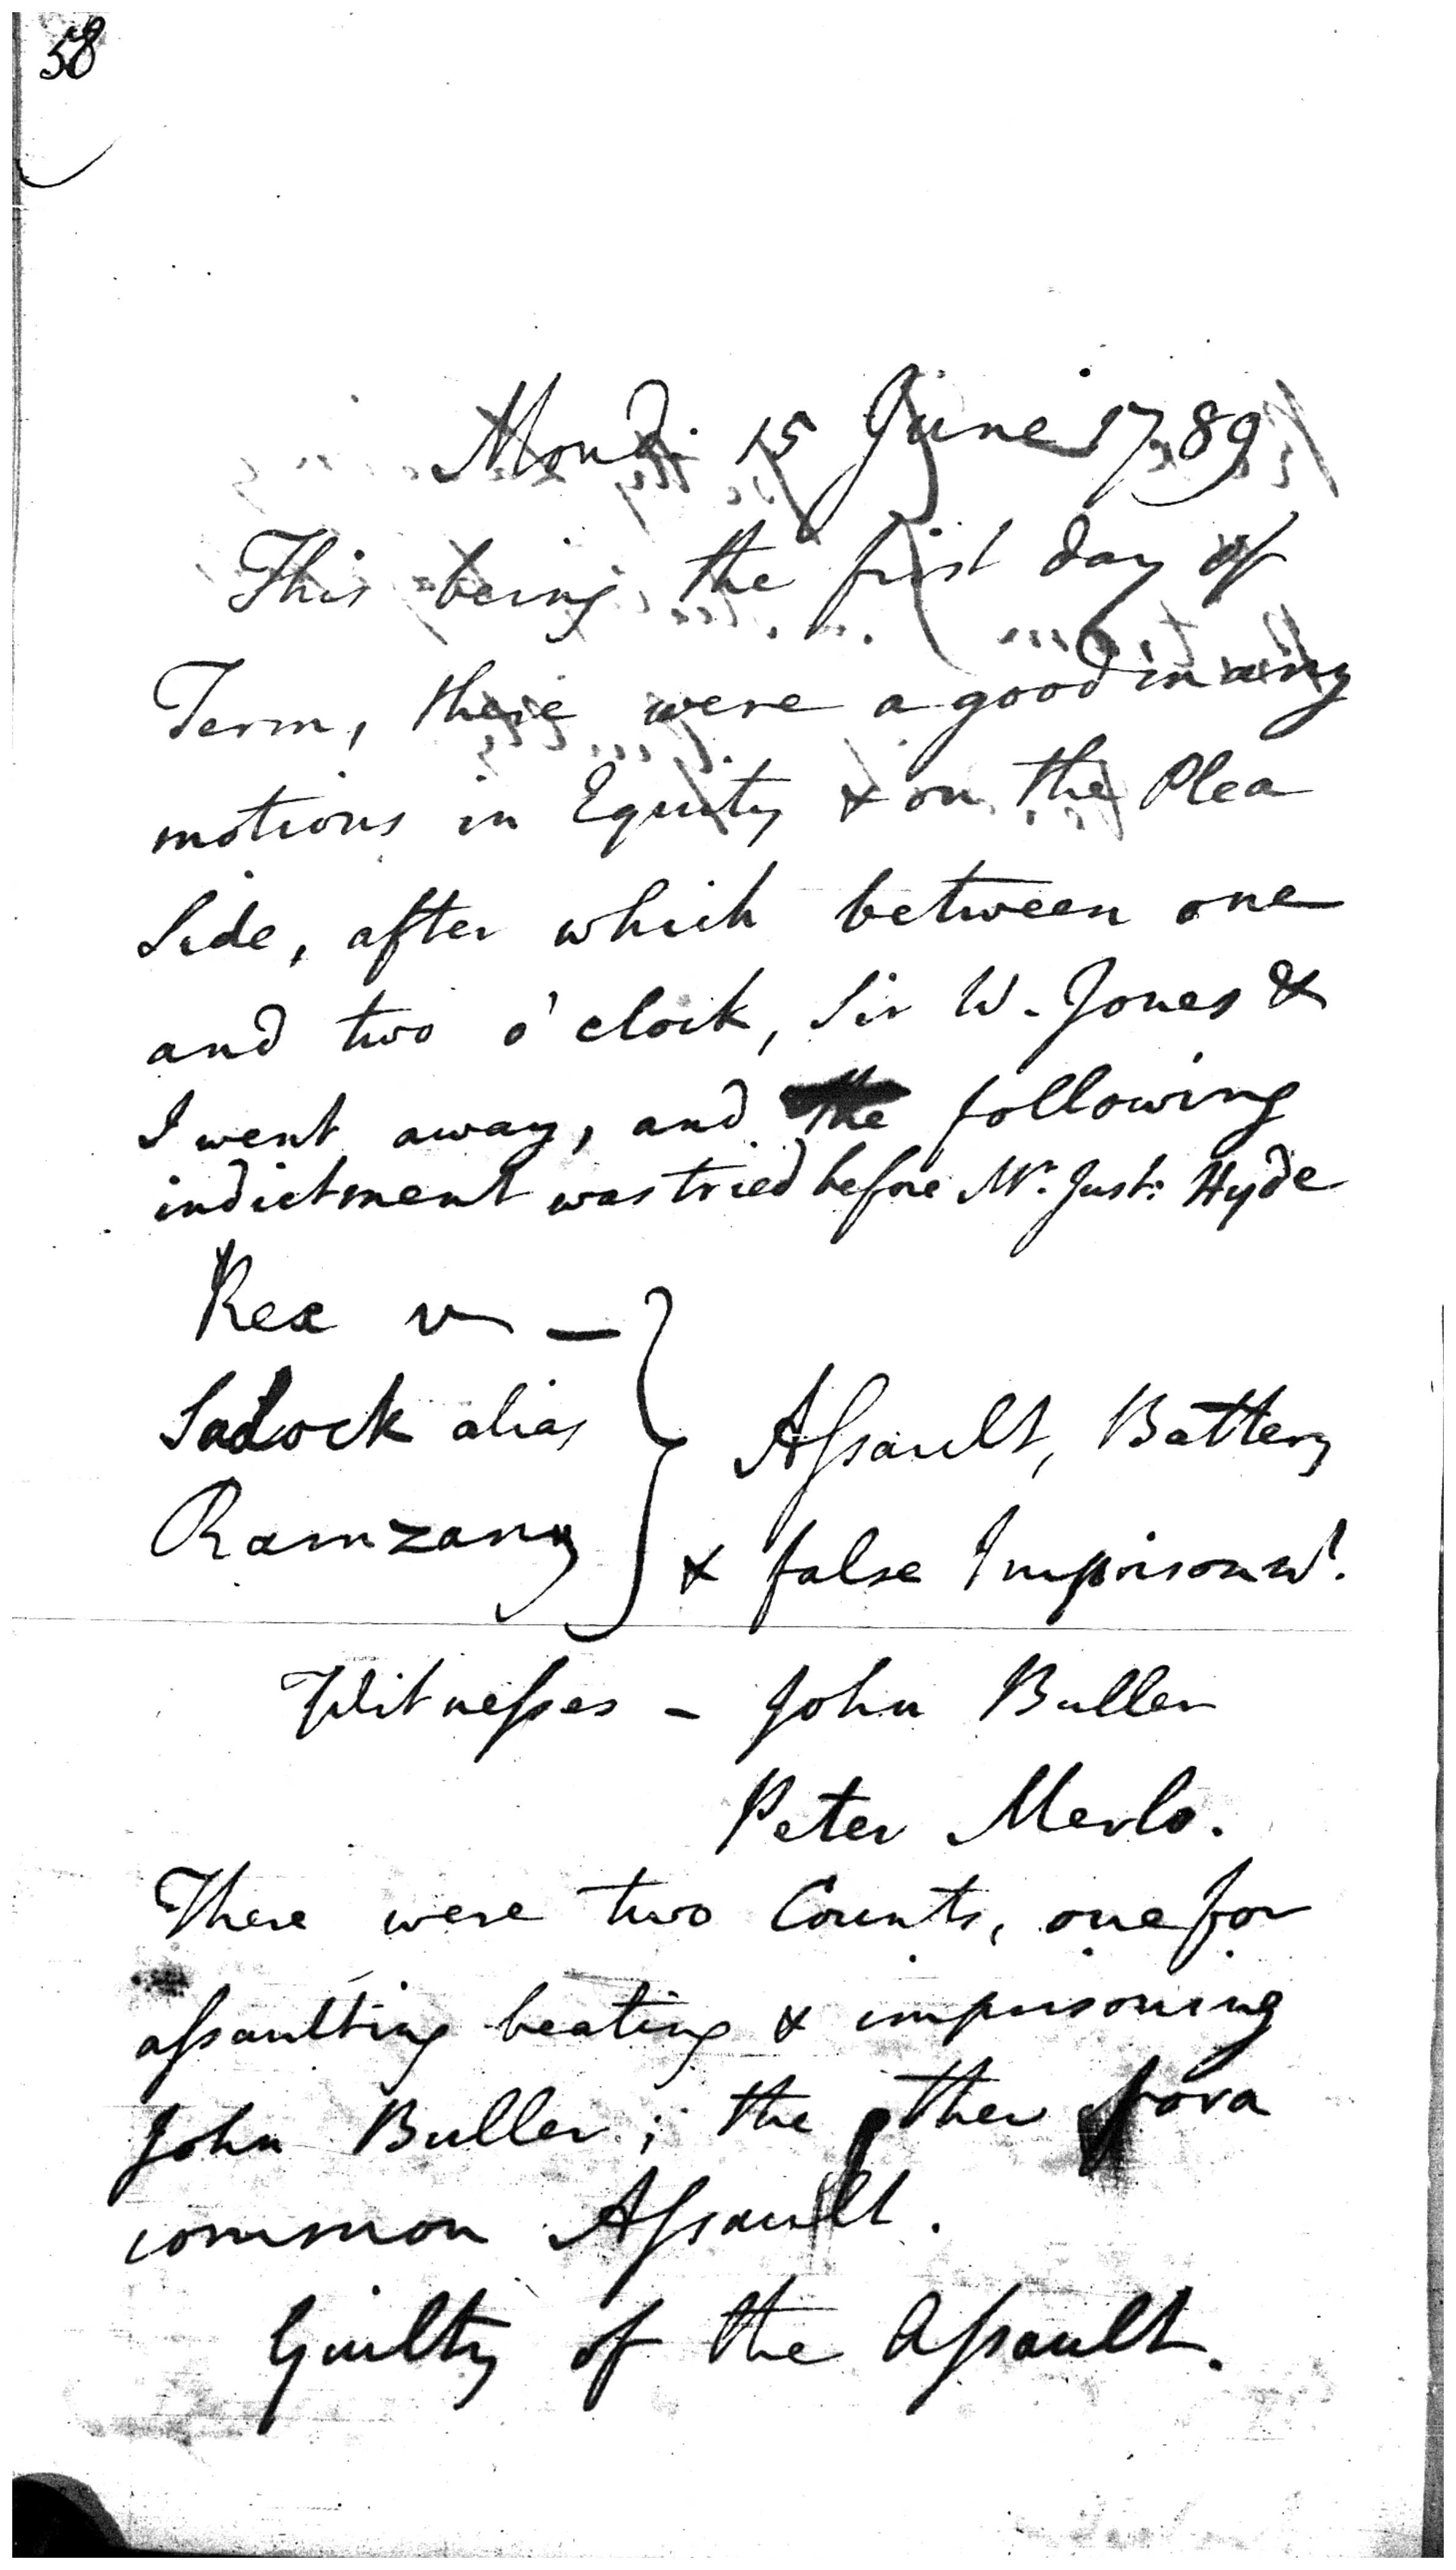 58
Mond: 15 June 1789
This being the first day of
Term, there were a good many
motions in Equity & on the Plea
Side, after which between one
and two o'clock, Sir W. Jones &
I went away, and the following
indictment was tried before Mr. Just: Hyde
Rex v —
Sadock alias
Ramzany
Assault, Battery
& false Imprisonmt.
Witnesses – John Buller
Peter Merlo.
There were two Counts, one for
assaulting beating & imprisoning
John Buller; the other for a
common Assault.
Guilty of the Assault.